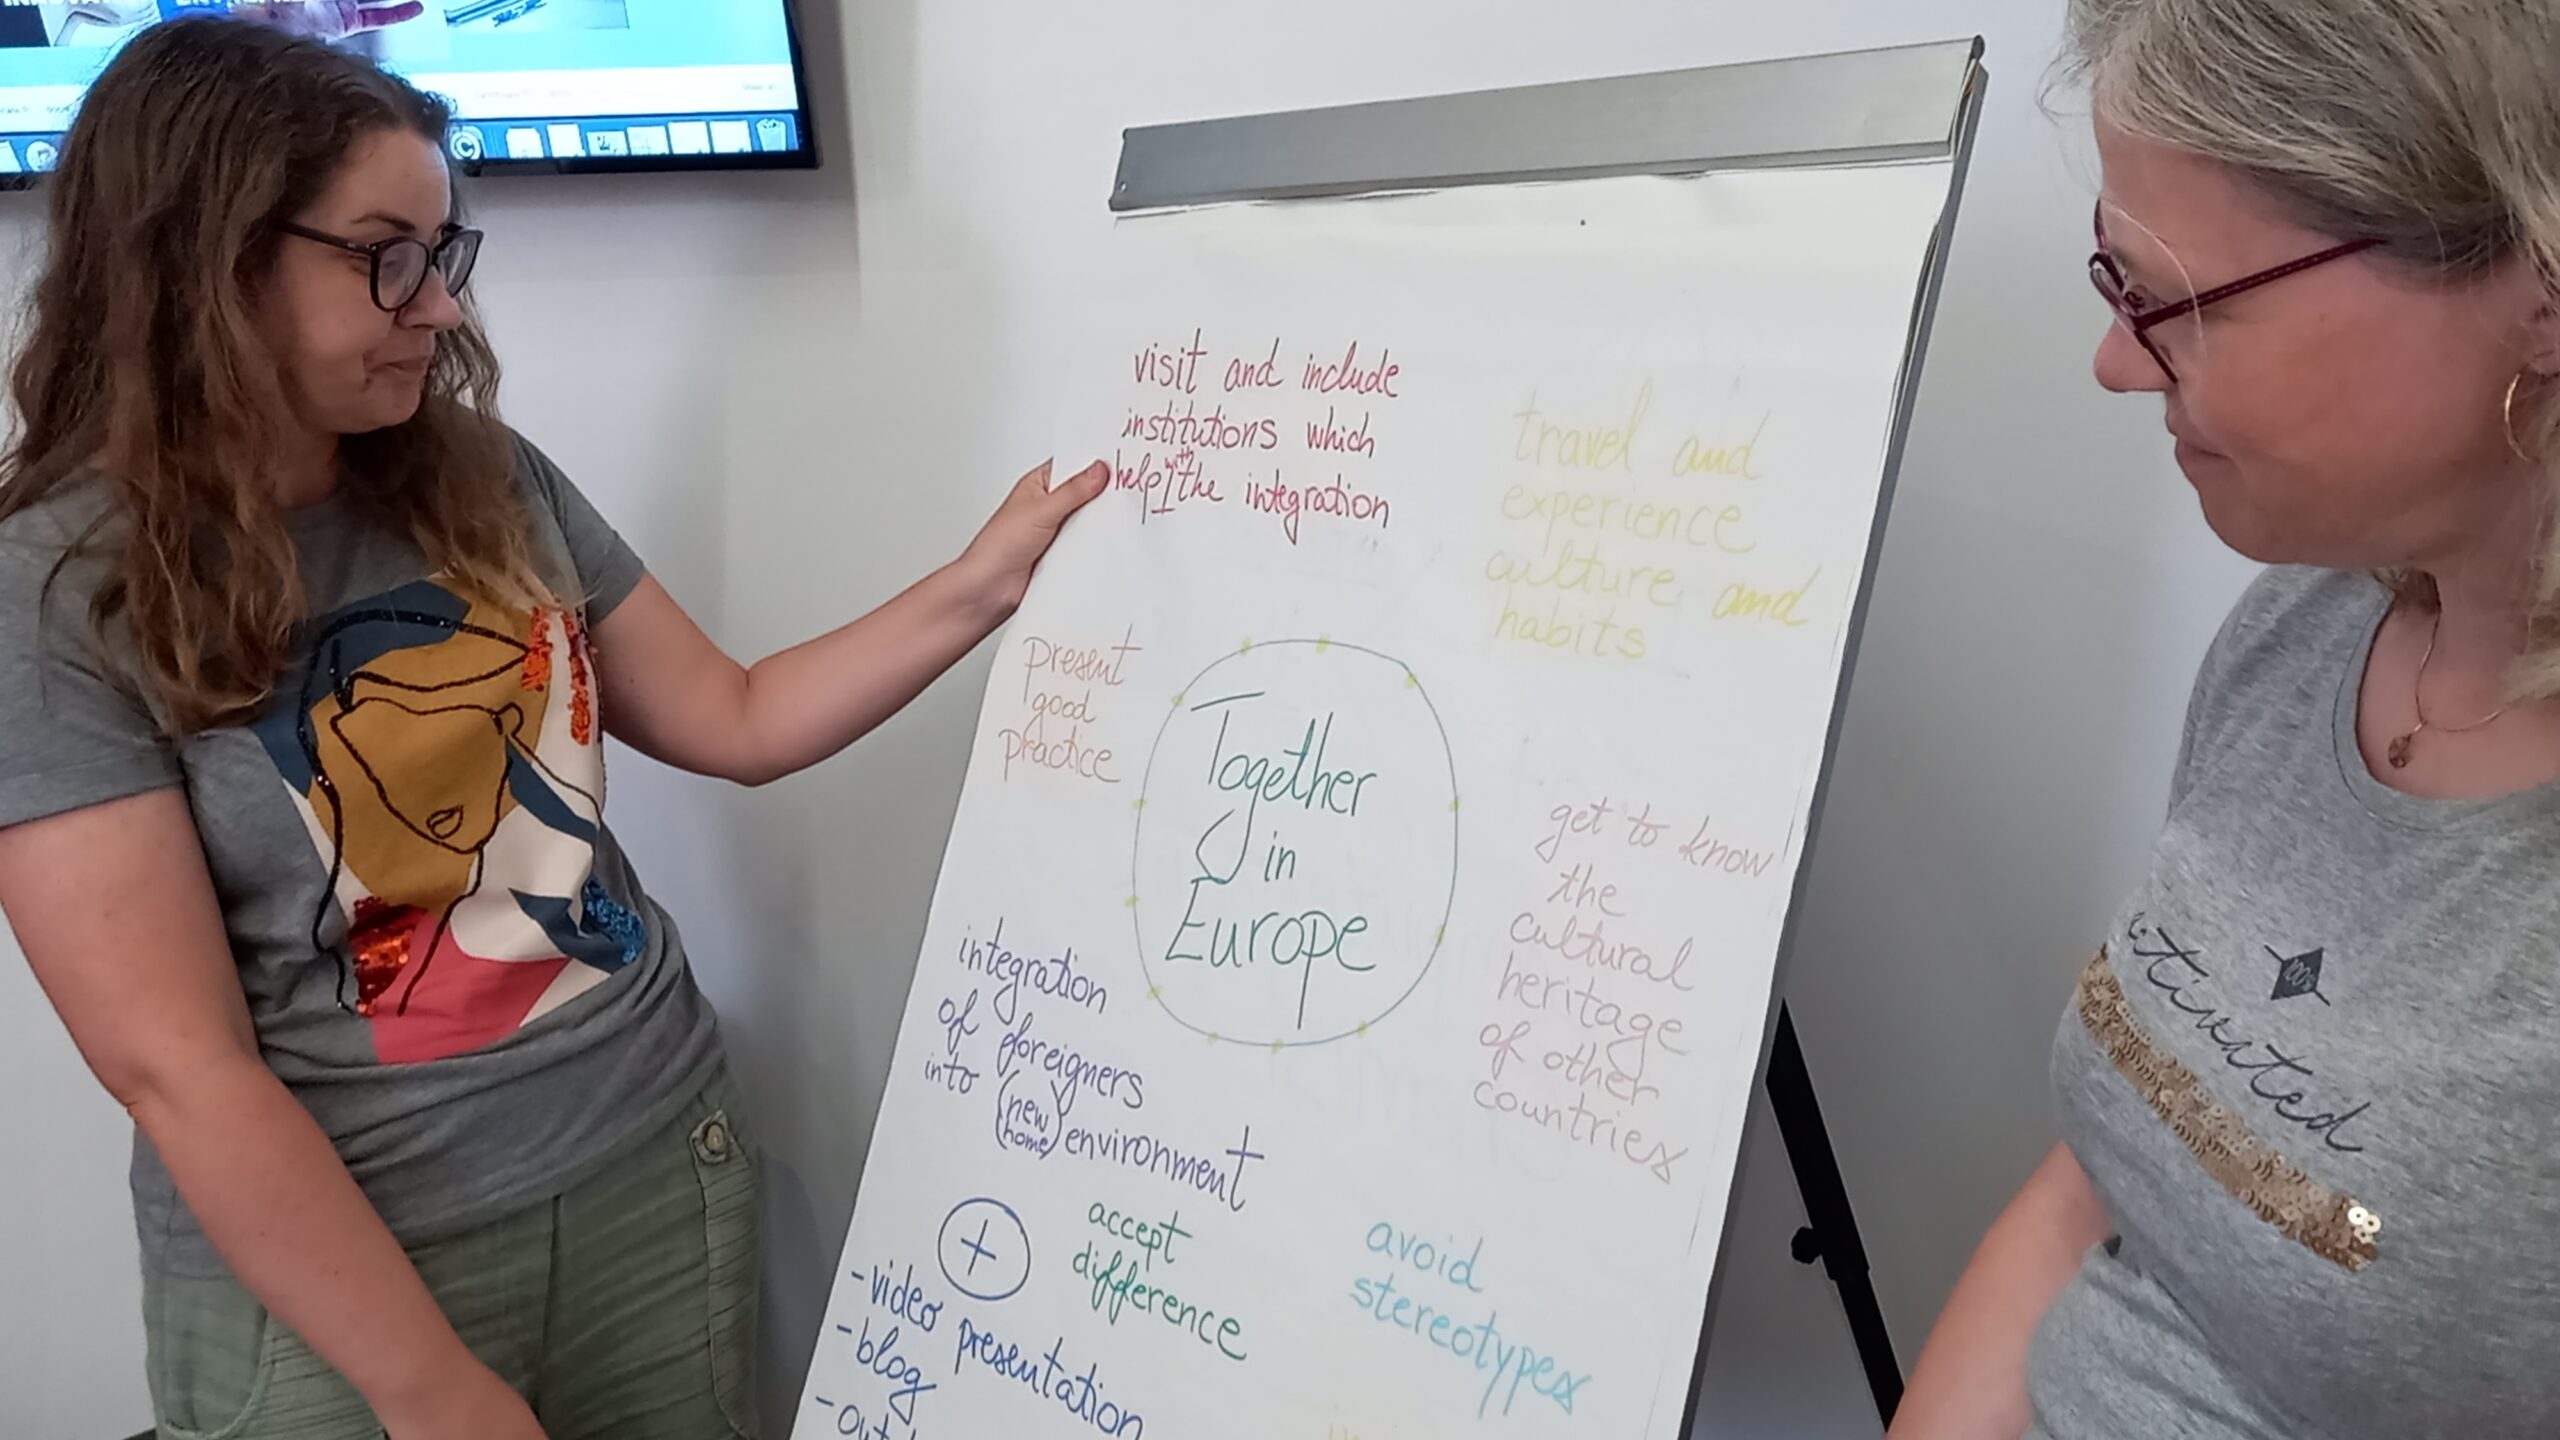 visit and include
institutions which
help with the integration
travel and
experience
culture and
habits
present
good
practice
Together
in
Europe
get to know
the
cultural
heritage
of other
countries
integration
of foreigners
into (new home) environment
+
accept
difference
avoid
stereotypes
- video presentation
- blog